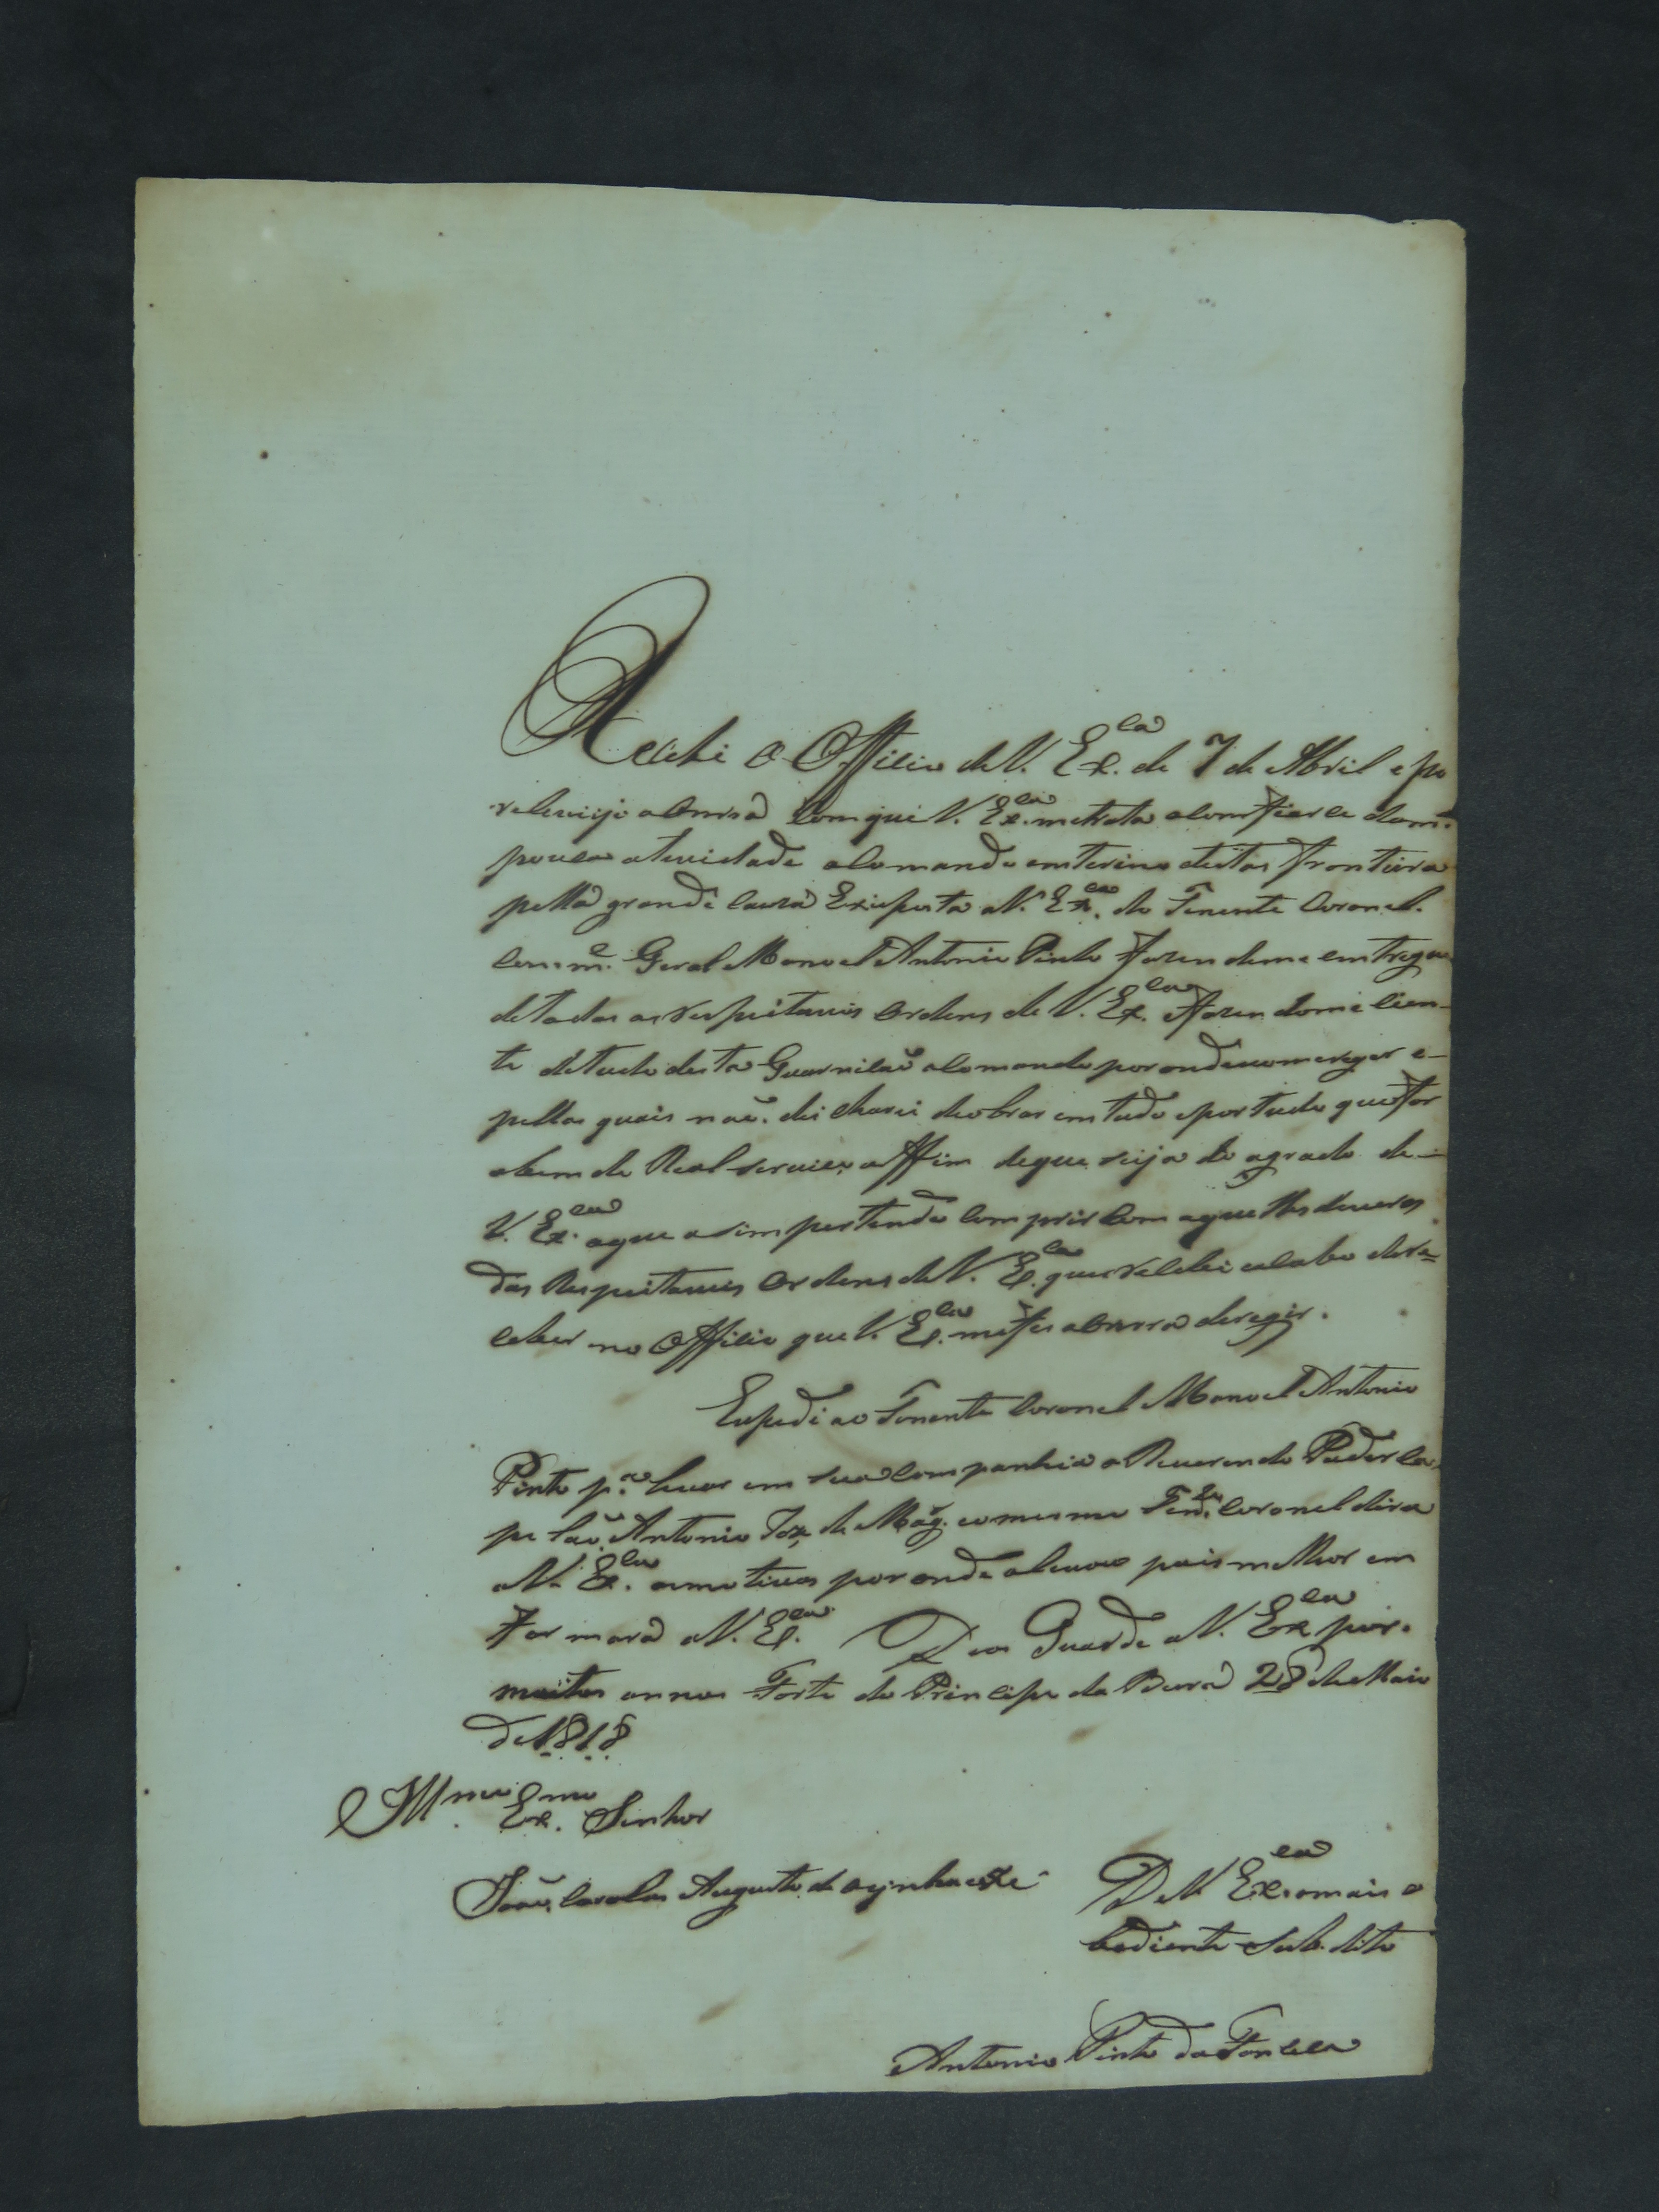 Recibi O Officio de V. Ex.cia de 7 de Abril e po
relle vejo a Omrra com que V. Ex.cia me trata a comfiarce da m.a
pouca atevidade a Comando emterino destas fronteira
pella grande cauza Exzeposta a V. Ex.cia do Tenente Coronel.
Com.m.e Geral Manoel Antonio Pinto fazendome emtrega
de todas as respeitaveis Ordens de V. Ex.cia e fazendome cien-
te de tudo desta Guarnicaõ a Comando por onde me reger e-
pellas quais naõ. deicharei de obrar em tudo e por tudo que for
a bem do Real servico, affim de que seija do agrado de-
V. Ex.cia a que asim pertendo comprir com aquellas deveres
das Respeitaveis Ordens de V. Ex.cia que recebi e acabo de re=
ceber no Officio que V. Ex.cia me fes a Omrra deregir.
Expedi ao Tenente Coronel Manoel Antonio
Pinto p.a levar em sua companhia o Reverendo Padre Ca,
pelaõ, Antonio Joze de Mag. e o mesmo Ten.te Coronel dira
a V. Ex.cia os motivos por onde a levou pois melhor em
formara a V. Ex.cia Deos Guarde a V. Ex.cia por.
muitos annos Forte do Principe da Beira 28 de Maio
de 1818
Ill.mo Ex.mo Senhor
Joaõ, Carolos Augusto de Oyenhauzse
De V. Ex.cia o mais o
bediente Subdito
Antonio Pinto da Fonceca